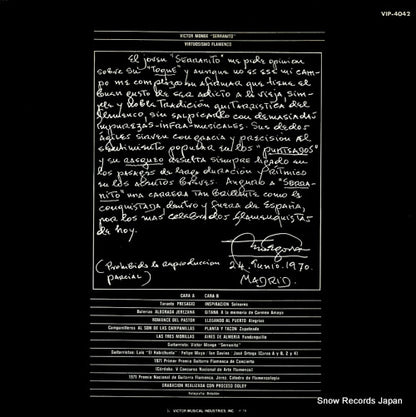 VIP-4042
VICTOR MONGE "SERRANITO"
VIRTUOSISMO FLAMENCO
El joven "SERRANITO" me pide opinión
sobre su "Toque" y aunque no es ese mi cam-
po me complazco en afirmar que tiene el
buen gusto de ser adicto a la vieja sim-
ple y noble tradición guitarrística del
flamenco, sin salpicarlo con demasiadas
impurezas-infra-musicales. Sus dedos
ágiles sirven con gracia y precisión el
sentimiento popular en los "PUNTEADOS"
y su RASGUEO resulta siempre ligado en
los pasajes de larga duración y rítmico
en los acentos breves. Auguro a "SERRA-
NITO" una carrera tan brillante como la
conquistada, dentro y fuera de España,
por los más celebrados flamenquista-
de hoy.
(Prohibida la reproducción
PARCIAL)
24. Junio. 1970.
MADRID.
CARA A CARA B
Taranto PRESAGIO INSPIRACION Soleares
Bulerías ALBORADA JEREZANA GITANA A la memoria de Carmen Amaya
ROMANCE DEL PASTOR LLEGANDO AL PUERTO Alegrías
Campanilleros AL SON DE LAS CAMPANILLAS PLANTA Y TACON Zapateado
LAS TRES MORILLAS AIRES DE ALMERIA Fandanguillo
Guitarrista: Víctor Monge "Serranito"
Guitarristas: Luis "El Habichuela" - Felipe Maya - José Castro (Caras A y B, 2 y 4)
1971 Primer Premio Guitarra Flamenca de Concierto
(Córdoba. V Concurso Nacional de Arte Flamenco)
1971 Premio Nacional de Guitarra Flamenca Jerez. Cátedra de Flamencología
GRABACION REALIZADA CON PROCESO DOLBY
VICTOR MUSICAL INDUSTRIES, INC.
Snow Records Japan